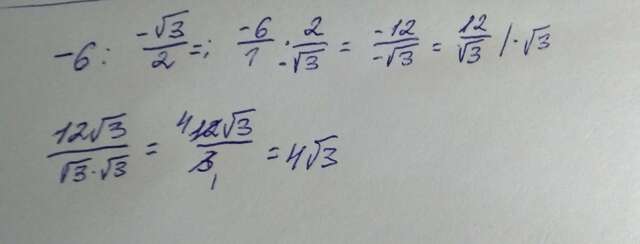 -6 : -√3/2 =; -6/1 · 2/-√3 = -12/-√3 = 12/√3 | ·√3
12√3/√3·√3 = 4 12√3/3 1 = 4√3